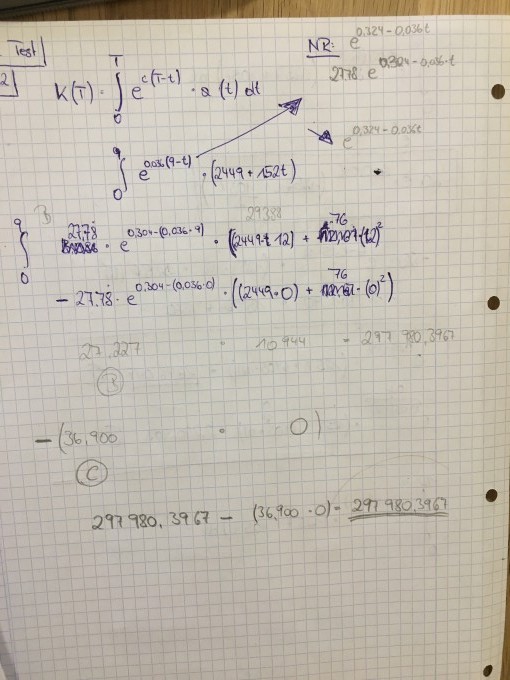 Test
2
NR: e^0,324-0,036t
K(T) · ∫₀ᵀ e^c(T-t) · a(t) dt
27,78 e^0,304-0,036·t
e^0,324-0,036t
∫₀⁹ e^0,036(9-t) · (2449+152t)
B
29388
∫₀⁹ 27,78 · e^0,304-(0,036·9) · ((2449·12) + 76·(12)²)
- 27,78 · e^0,304-(0,036·0) · ((2449·0) + 76·(0)²)
27,227 · 10944 = 297 980,3967
B
-(36,900 · 0)
C
297 980,3967 - (36,900·0) = 297 980,3967